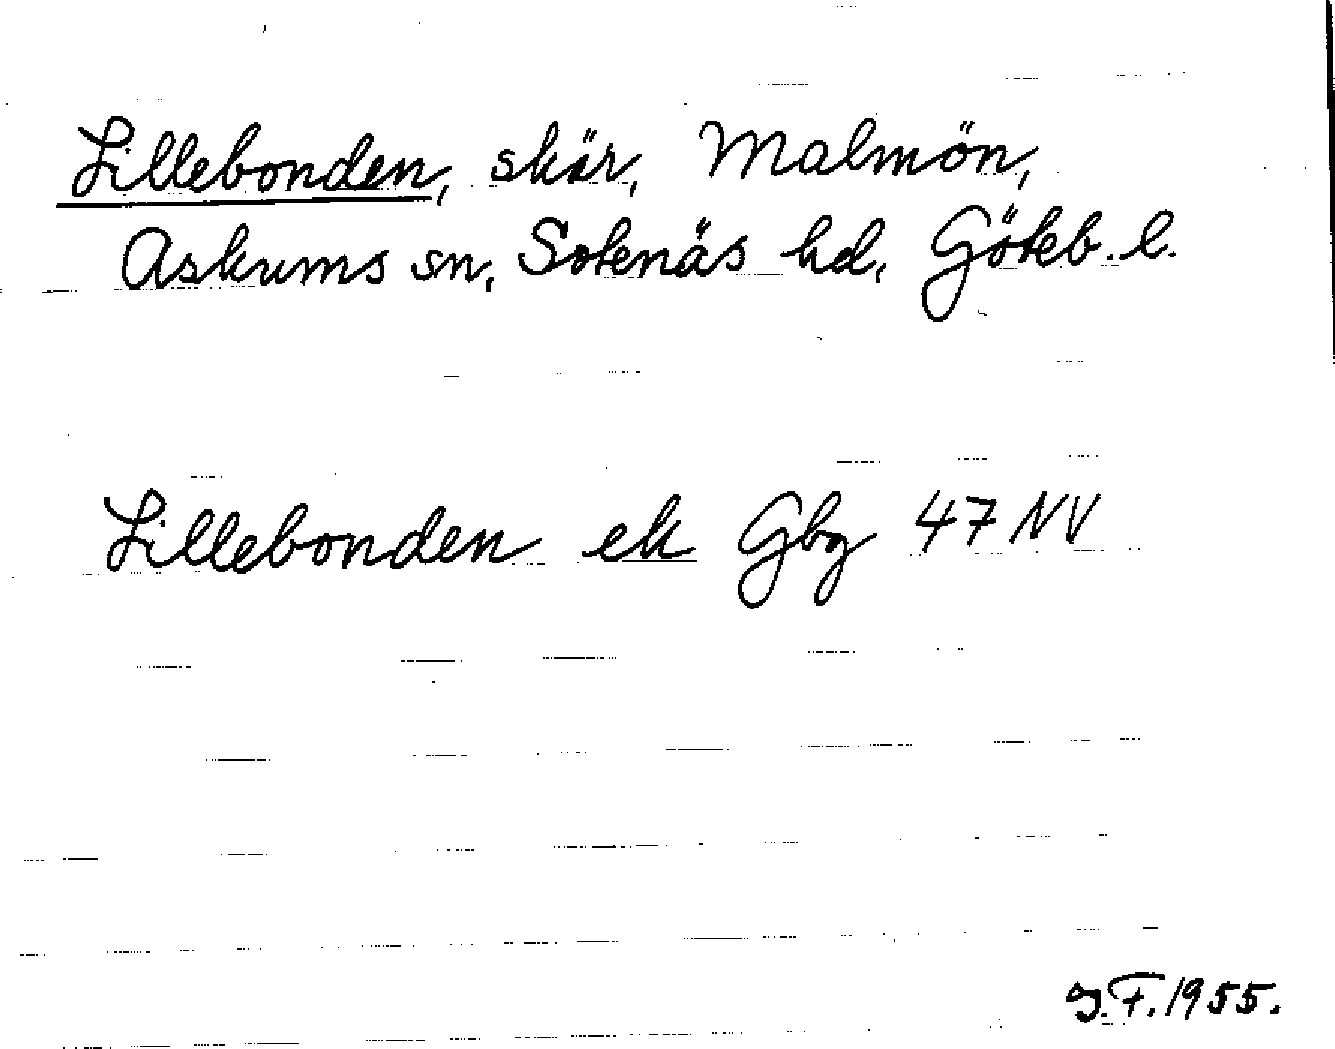 Lillebonden, skär, Malmön,
Askums sn, Sotenäs hd, Göteb. l.
Lillebonden ek Gbg 47 NV
J.F. 1955.